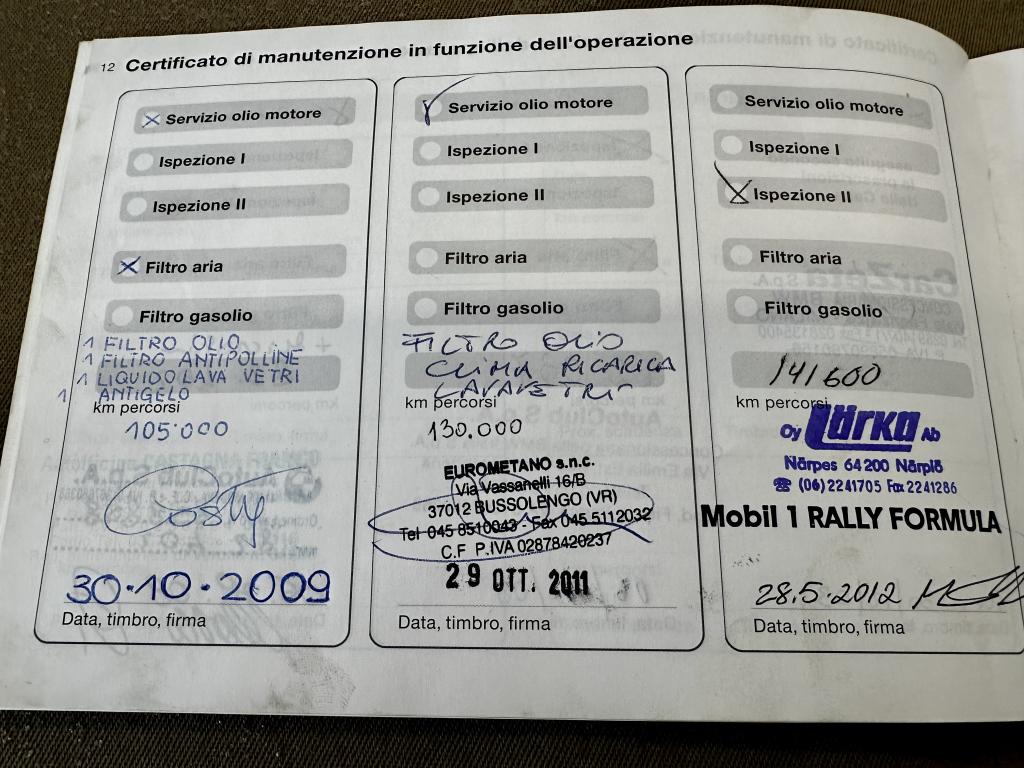 12 Certificato di manutenzione in funzione dell'operazione
Servizio olio motore
Ispezione I
Ispezione II
Filtro aria
Filtro gasolio
1 FILTRO OLIO
1 FILTRO ANTIPOLLINE
1 LIQUIDO LAVA VETRI
1 ANTIGELO
km percorsi
105.000
30.10.2009
Data, timbro, firma
Servizio olio motore
Ispezione I
Ispezione II
Filtro aria
Filtro gasolio
FILTRO OLIO
CLIMA RICARICA
LAVAVETRI
km percorsi
130.000
EUROMETANO s.n.c.
Via Vassanelli 16/B
37012 BUSSOLENGO (VR)
Tel 045 8510043 - Fax 045 5112032
C.F P.IVA 02878420237
29 OTT. 2011
Data, timbro, firma
Servizio olio motore
Ispezione I
Ispezione II
Filtro aria
Filtro gasolio
141600
km percorsi
Oy Lärka Ab
Närpes 64200 Närpiö
☎ (06) 2241705 Fax 2241286
Mobil 1 RALLY FORMULA
28.5.2012
Data, timbro, firma